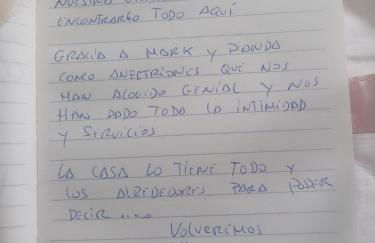 ENCONTRARLO TODO AQUÍ
GRACIA A MARK Y DONDA
COMO ANFETRIONES QUE NOS
HAN ALOGIDO GENIAL Y NOS
HAN DADO TODA LA INTIMIDAD
Y SERVICIOS
LA CASA LO TIENE TODO Y
LOS ALREDEDORES PARA PODER
DECIR ....
VOLVEREMOS